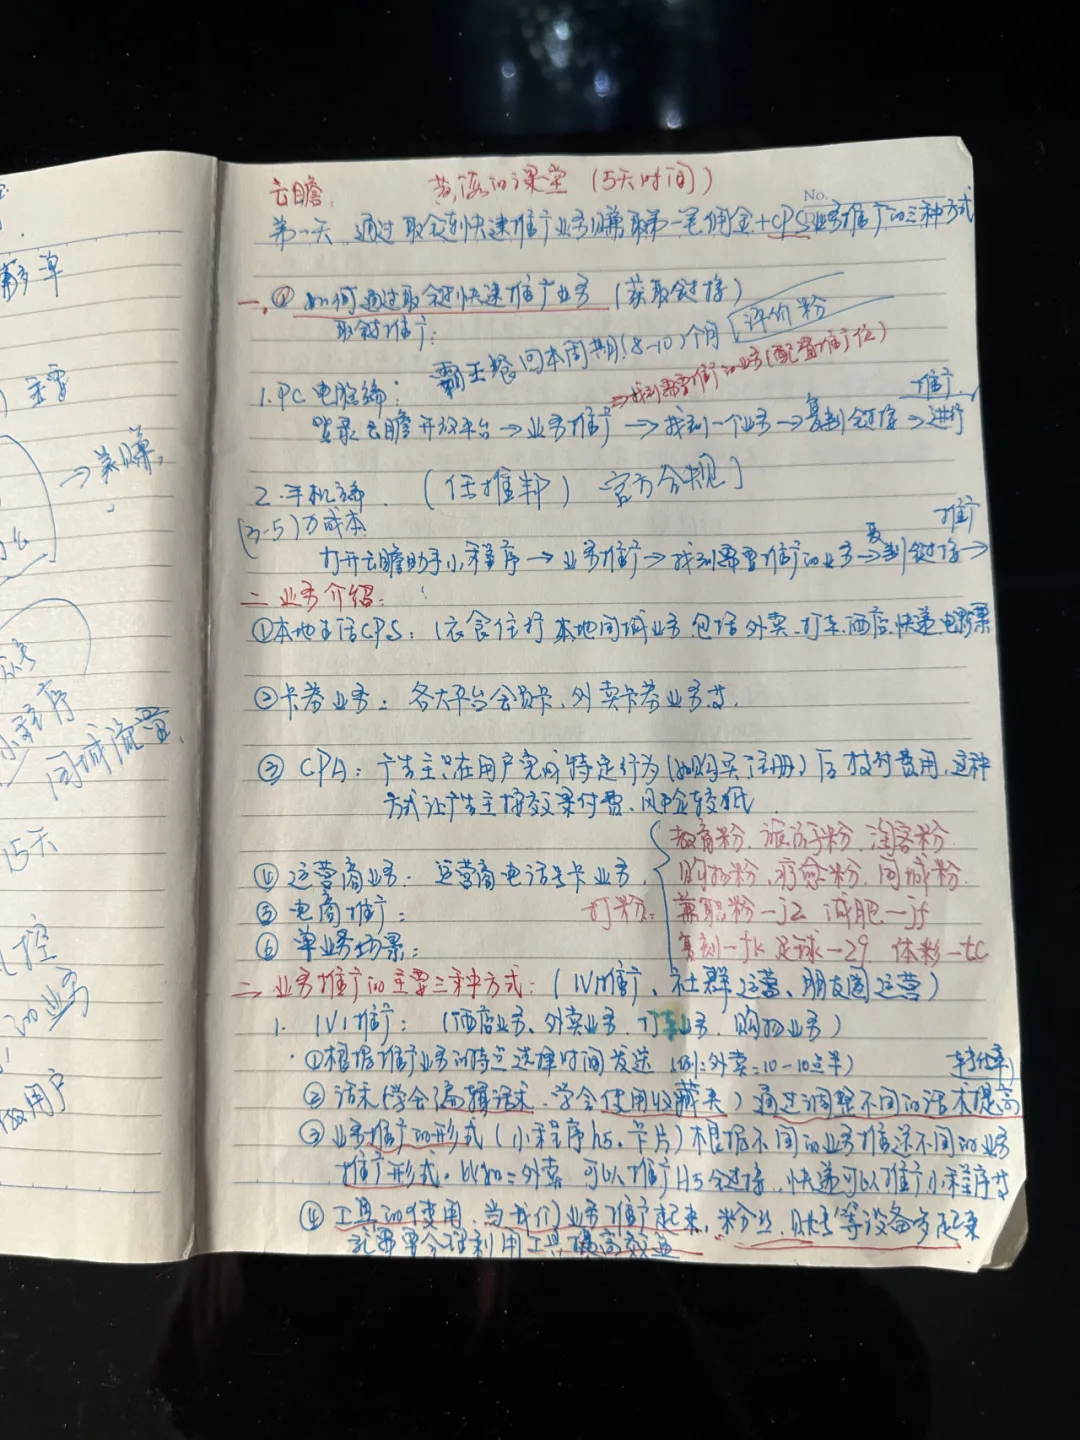 霸单
主需
→美赚,
小程序
同城流量,
15天
控
业务
做用户
云瞻, 黄源的课堂 (5天时间)
No.
第一天 通过取链快速推广业务赚取第一笔佣金+CPS业务推广的三种方式
一、① 如何通过取链快速推广业务 (获取链接)
取链推广:
霸王餐回本周期(8-10)个月 评价粉
1.PC电脑端: ⇒找到需要推广的业务(配置推广位)
登录云瞻开放平台→业务推广→找到一个业务→复制链接→进行推广
2.手机端 (任推邦) 官方合规]
(3-5)万成本
打开云瞻助手小程序→业务推广→找到需要推广的业务→复制链接→推广
二 业务介绍:
①本地生活CPS: (衣食住行 本地同城业务 包括外卖、打车、酒店、快递、电影票
②卡券业务: 各大平台会员卡、外卖卡券业务等.
③ CPA: 广告主只在用户完成特定行为(如购买注册)后支付费用,这种
方式让广告主按效果付费、风险较低
教育粉、旅游粉、淘客粉
④ 运营商业务: 运营商电话号卡业务 购物粉、疗愈粉、同城粉.
⑤ 电商推广: 打粉: 兼职粉-jz 减肥-jf
⑥ 单业务场景: 复刻-fk 足球-zq 体彩-tc
二、业务推广的主要三种方式: (1V1推广、社群运营、朋友圈运营)
1. 1V1推广: (酒店业务、外卖业务、打车业务、购物业务)
①根据推广业务的特点选择时间发送 (例:外卖:10-10点半) 转化率
② 话术(学会编辑话术、学会使用收藏夹)通过调整不同的话术提高
③ 业务推广的形式(小程序h5、卡片)根据不同的业务推送不同的业务
推广形式.比如=外卖 可以推广H5链接、快递可以推广小程序等
④ 工具的使用、当我们业务推广起来,粉丝、账号等设备多起来
就需要合理利用工具提高效率